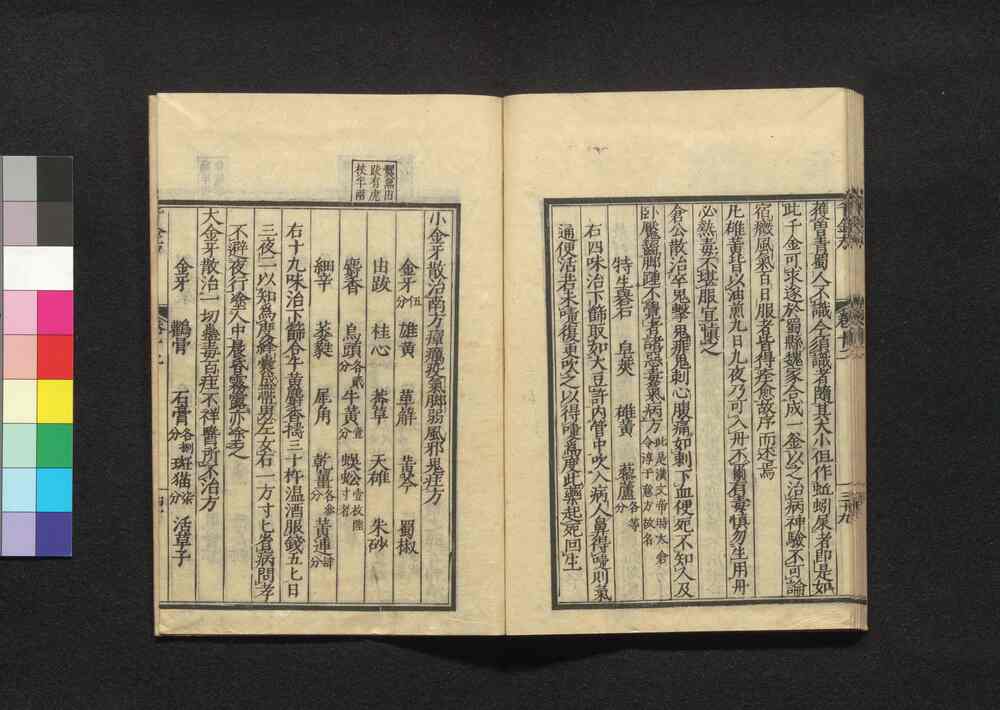 曾青蜀人不識今須識者隨其大小但作蚯蚓屎者即是如
此千金可求遂於蜀縣魏家合成一釜以之治病神驗不可論
宿癥風氣百日服者皆得痊愈故序而述焉
凡雄黃皆以油煎九日九夜乃可入丹不爾有毒慎勿生用丹
必熱毒不堪服宜慎之
倉公散治卒鬼擊鬼排鬼刺心腹痛如刺下血便死不知人及
臥魘齧脚踵不覺者諸惡毒氣病方此是漢文帝時太倉令淳于意方故名
特生礜石 皂莢 雄黃 藜蘆各等分
右四味治下篩取如大豆許內管中吹入病人鼻得嚏則氣
通便活若未嚏復更吹之以得嚏爲度此藥起死回生
小金牙散治南方瘴癘疫氣脚弱風邪鬼疰方
金牙伍分 雄黃 萆薢 黃芩 蜀椒
由跋 桂心 莽草 天雄 朱砂
麝香 烏頭各貳分 牛黃壹分 蜈蚣壹枚陸寸者
細辛 萎蕤 犀角 乾薑各叁分 黃連肆分
右十九味治下篩合牛黃麝香擣三千杵温酒服錢五七日
三夜二以知爲度絳囊盛帶男左女右一方寸匕省病問孝
不避夜行塗人中晨昏霧露亦塗之
大金牙散治一切蠱毒百疰不祥醫所不治方
金牙 鸛骨 石膏各捌分 斑猫柒分 活草子